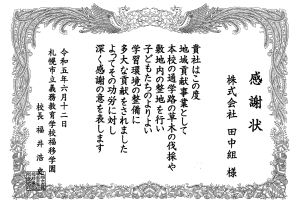 感謝状
株式会社 田中組 様
貴社はこの度
地域貢献事業として
本校の通学路の草木の伐採や
敷地内の整地を行い
子どもたちのよりよい
学習環境の整備に
多大な貢献をされました
よってその功労に対し
深く感謝の意を表します
令和五年六月十二日
札幌市立義務教育学校福移学園
校長 福井浩